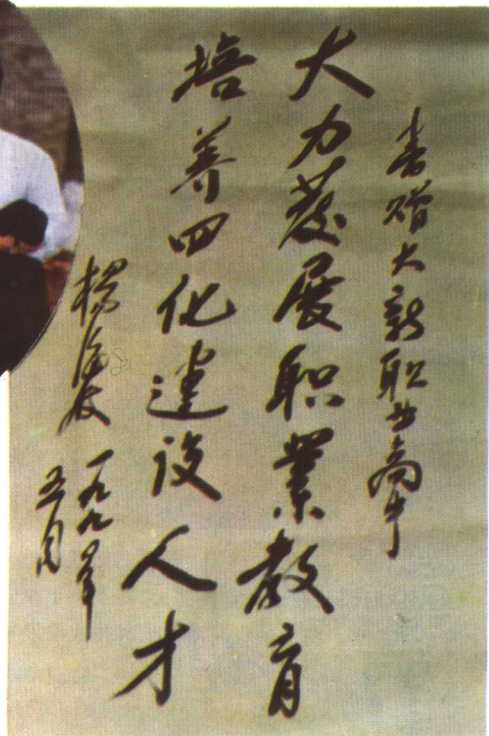 书赠大新职业高中
大力发展职业教育
培养四化建设人才
杨
一九九〇年
五月